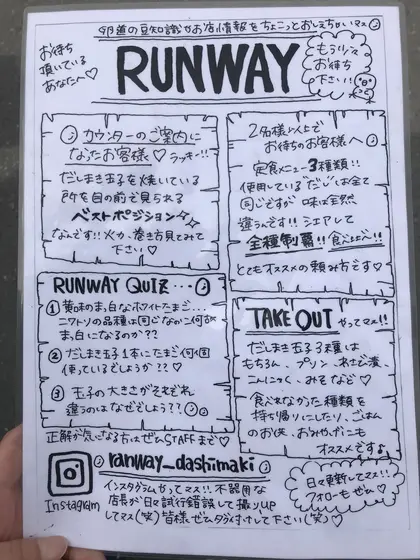 卵道の豆知識やお店情報をちょこっとおしえちゃいマス
お待ち
頂いている
あなたへ♡
RUNWAY
もう少々
お待ち
下さい!!
カウンターのご案内に
なったお客様♡ラッキー!!
だしまき玉子を焼いている
所を目の前で見られる
ベストポジション
なんです!!火加減、巻き方見てみて
下さい♡
2名様以上で
お待ちのお客様へ
定食メニュー3種類!!
使用しているだしは全て
同じですが味は全然
違うんです!!シェアして
全種制覇!!食べよう!!
とてもオススメの頼み方です♡
RUNWAY QUIZ...
① 黄味のまっ白なホワイトたまご...
ニワトリの品種は同じなのに何故
まっ白になるのか??
② だしまき玉子1本にたまご何個
使っているでしょうか??♡
③ 玉子の大きさがそれぞれ
違うのはなぜでしょう??
正解が気になる方はぜひSTAFFまで♡
TAKE OUT やってマス!!
だしまき玉子3種は
もちろん、プリン、わさび漬、
こんにゃく、みそなど♡
食べれなかった種類を
持ち帰りにしたり、ごはん
のお供、おみやげにも
オススメですよ
Instagram
ranway_dashimaki
インスタグラムやってマス!!不器用な
店長が日々試行錯誤して撮りUP
してマス(笑)皆様ぜひタグ付けして下さい(笑)♡
日々更新してマス!!
フォローもぜひ♡